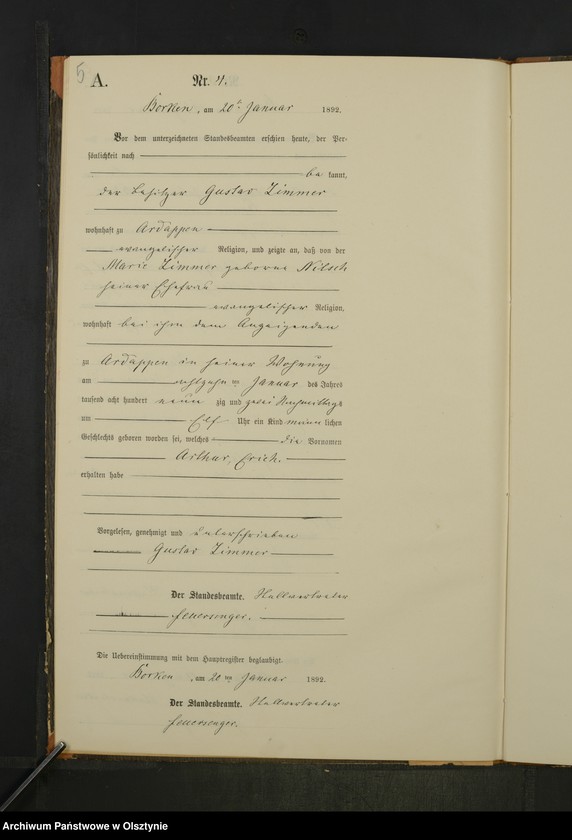 5
A.
Nr. 4.
Borken, am 20ten Januar 1892.
Vor dem unterzeichneten Standesbeamten erschien heute, der Per-
sönlichkeit nach
be kannt,
der Besitzer Gustav Zimmer
wohnhaft zu Ardappen
evangelischer Religion, und zeigte an, daß von der
Marie Zimmer geborne Nitsch
seiner Ehefrau
evangelischer Religion,
wohnhaft bei ihm dem Anzeigenden
zu Ardappen in seiner Wohnung
am achtzehn ten Januar des Jahres
tausend acht hundert neun zig und zwei Nachmittags
um Elf Uhr ein Kind männ lichen
Geschlechts geboren worden sei, welches die Vornamen
Arthur, Erich.
erhalten habe
Vorgelesen, genehmigt und unterschrieben
Gustav Zimmer
Der Standesbeamte. Stellvertreter
Feuersenger.
Die Uebereinstimmung mit dem Hauptregister beglaubigt.
Borken, am 20ten Januar 1892.
Der Standesbeamte. Stellvertreter
Feuersenger.
Archiwum Państwowe w Olsztynie